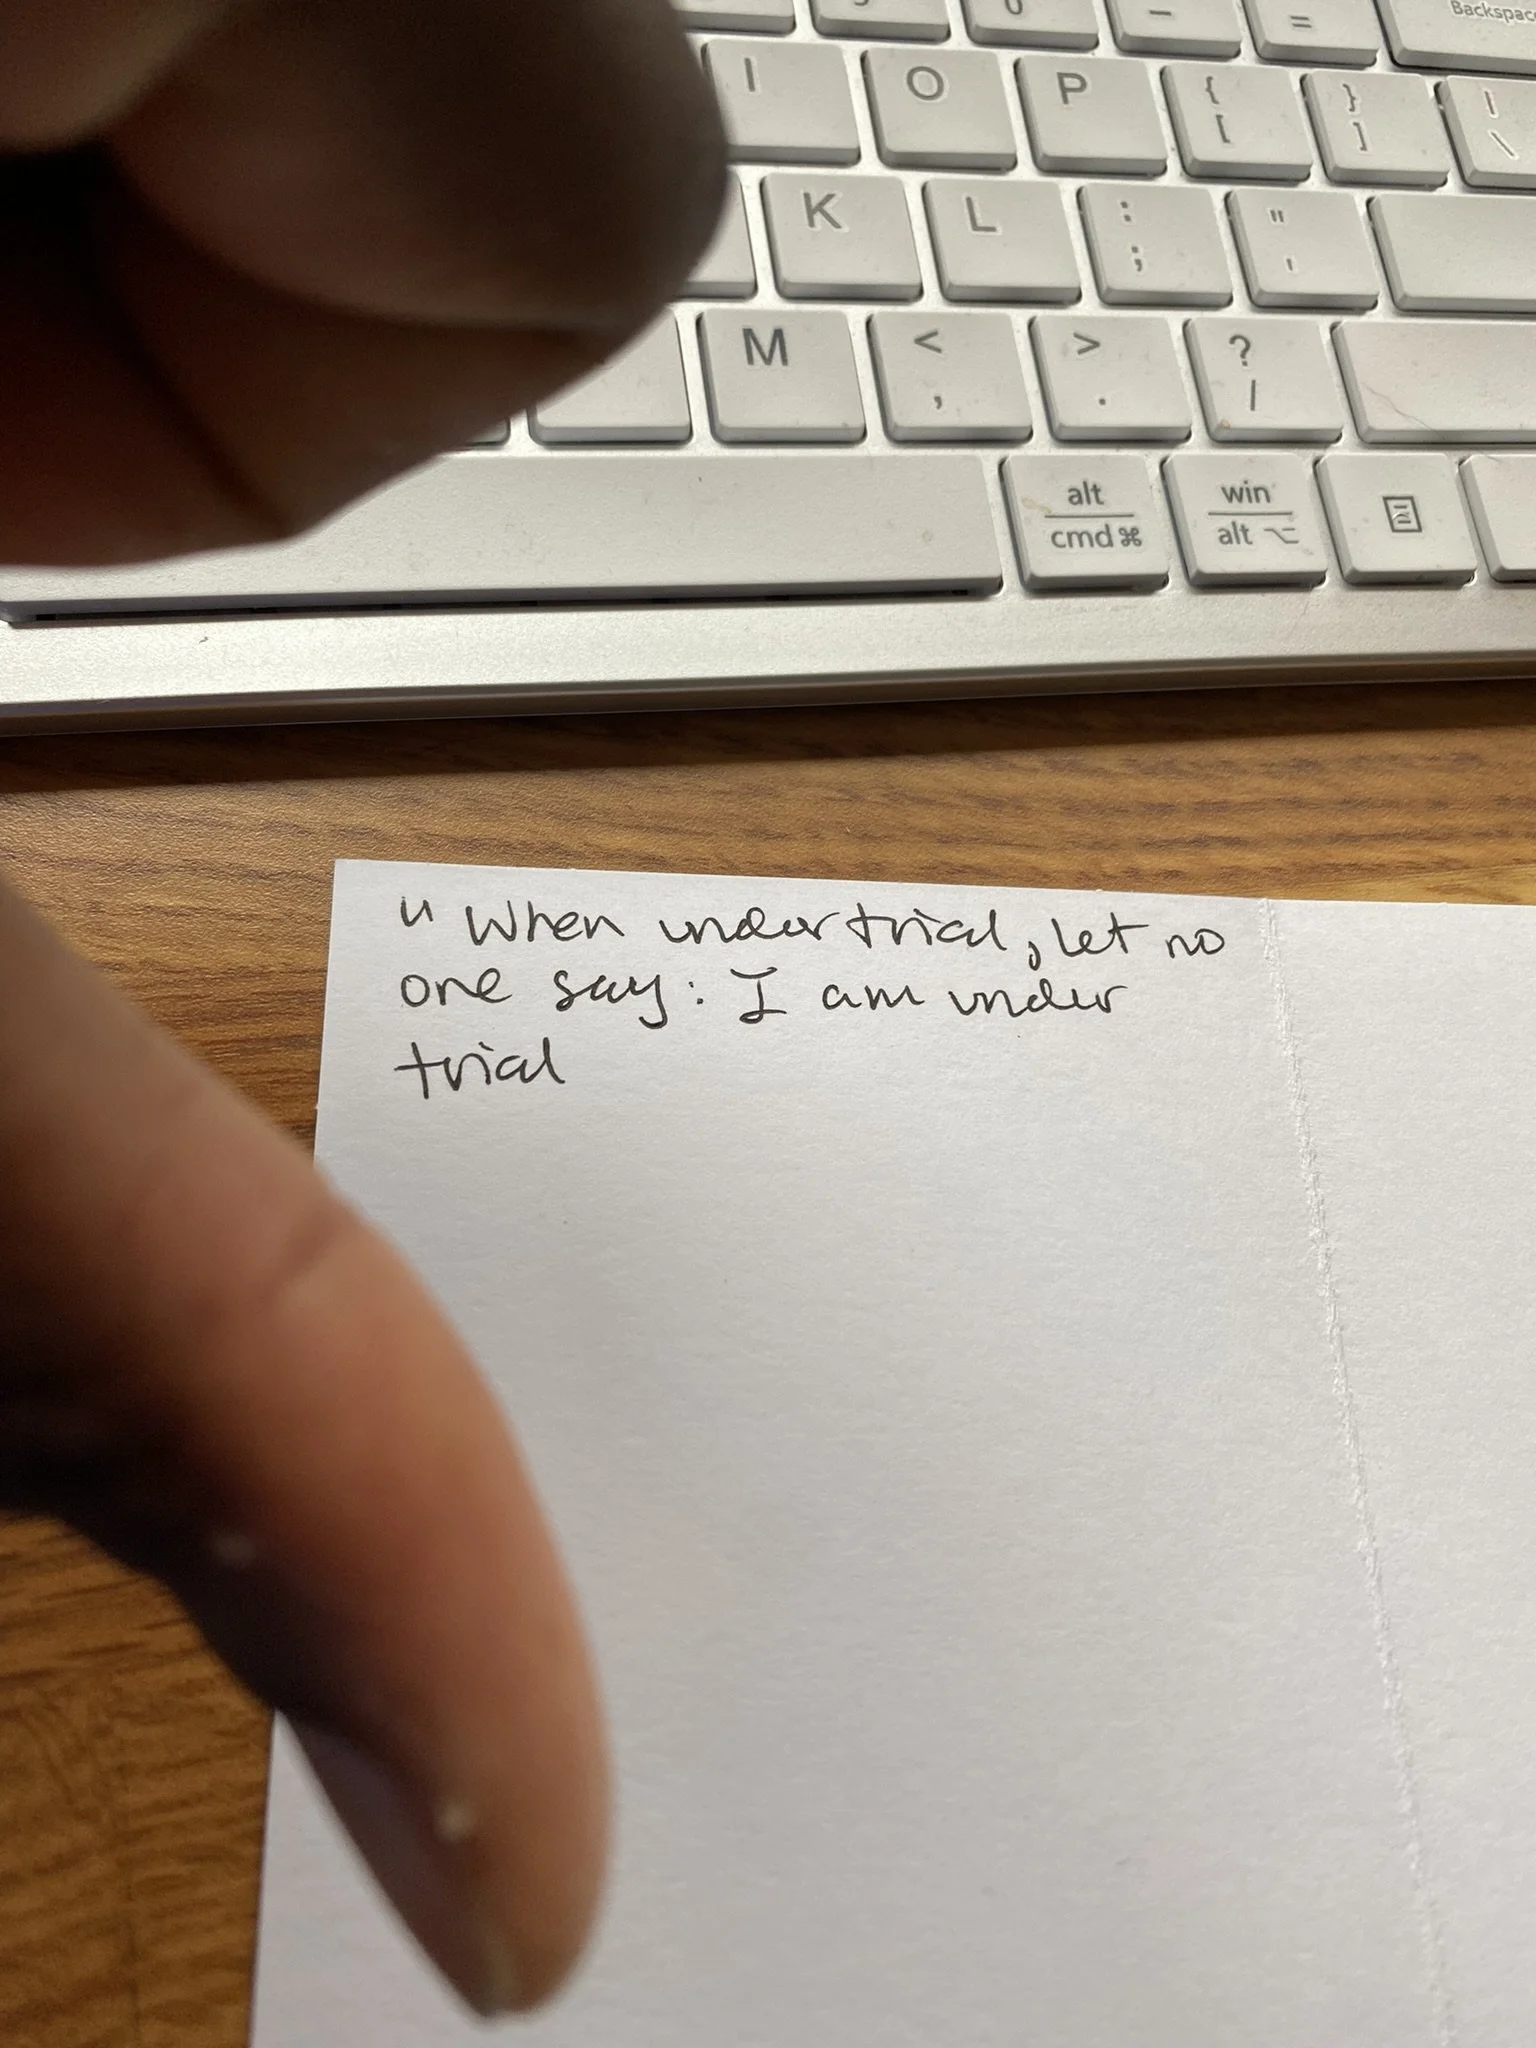 0 - =
Backspac
I O P { [ } ] | \
K L : ; " '
M < , > . ? /
alt win
cmd ⌘ alt ⌥
" When under trial, let no
one say: I am under
trial